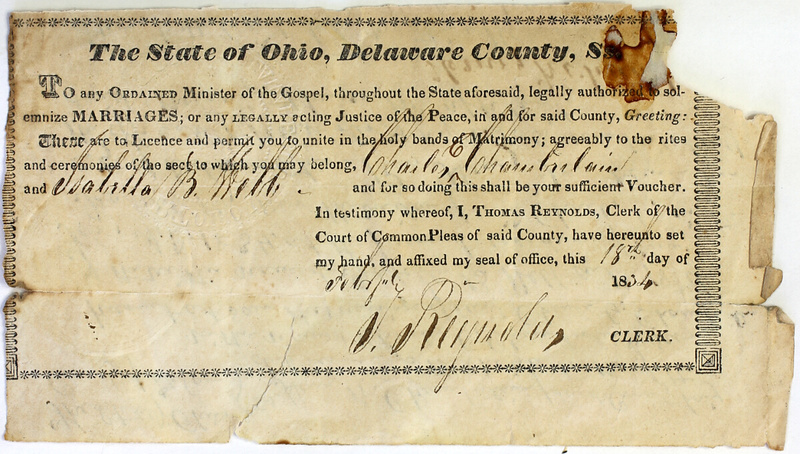 The State of Ohio, Delaware County, Ss
To any Ordained Minister of the Gospel, throughout the State aforesaid, legally authorized to sol-
emnize MARRIAGES; or any legally acting Justice of the Peace, in and for said County, Greeting:
These are to Licence and permit you to unite in the holy bands of Matrimony; agreeably to the rites
and ceremonies of the sect to which you may belong, Charles E Chamberlain
and Isabella B. Webb - and for so doing this shall be your sufficient Voucher.
In testimony whereof, I, Thomas Reynolds, Clerk of the
Court of Common Pleas of said County, have hereunto set
my hand, and affixed my seal of office, this 18th day of
1834
T. Reynolds, CLERK.